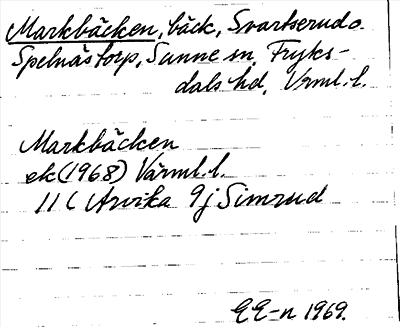 Markbäcken, bäck, Svartserud o.
Spelnästorp, Sunne sn, Fryks-
dals hd, Vrml. l.
Markbäcken
ek (1968) Värml. l.
11 C Arvika 9j Simrud
EE-n 1969.